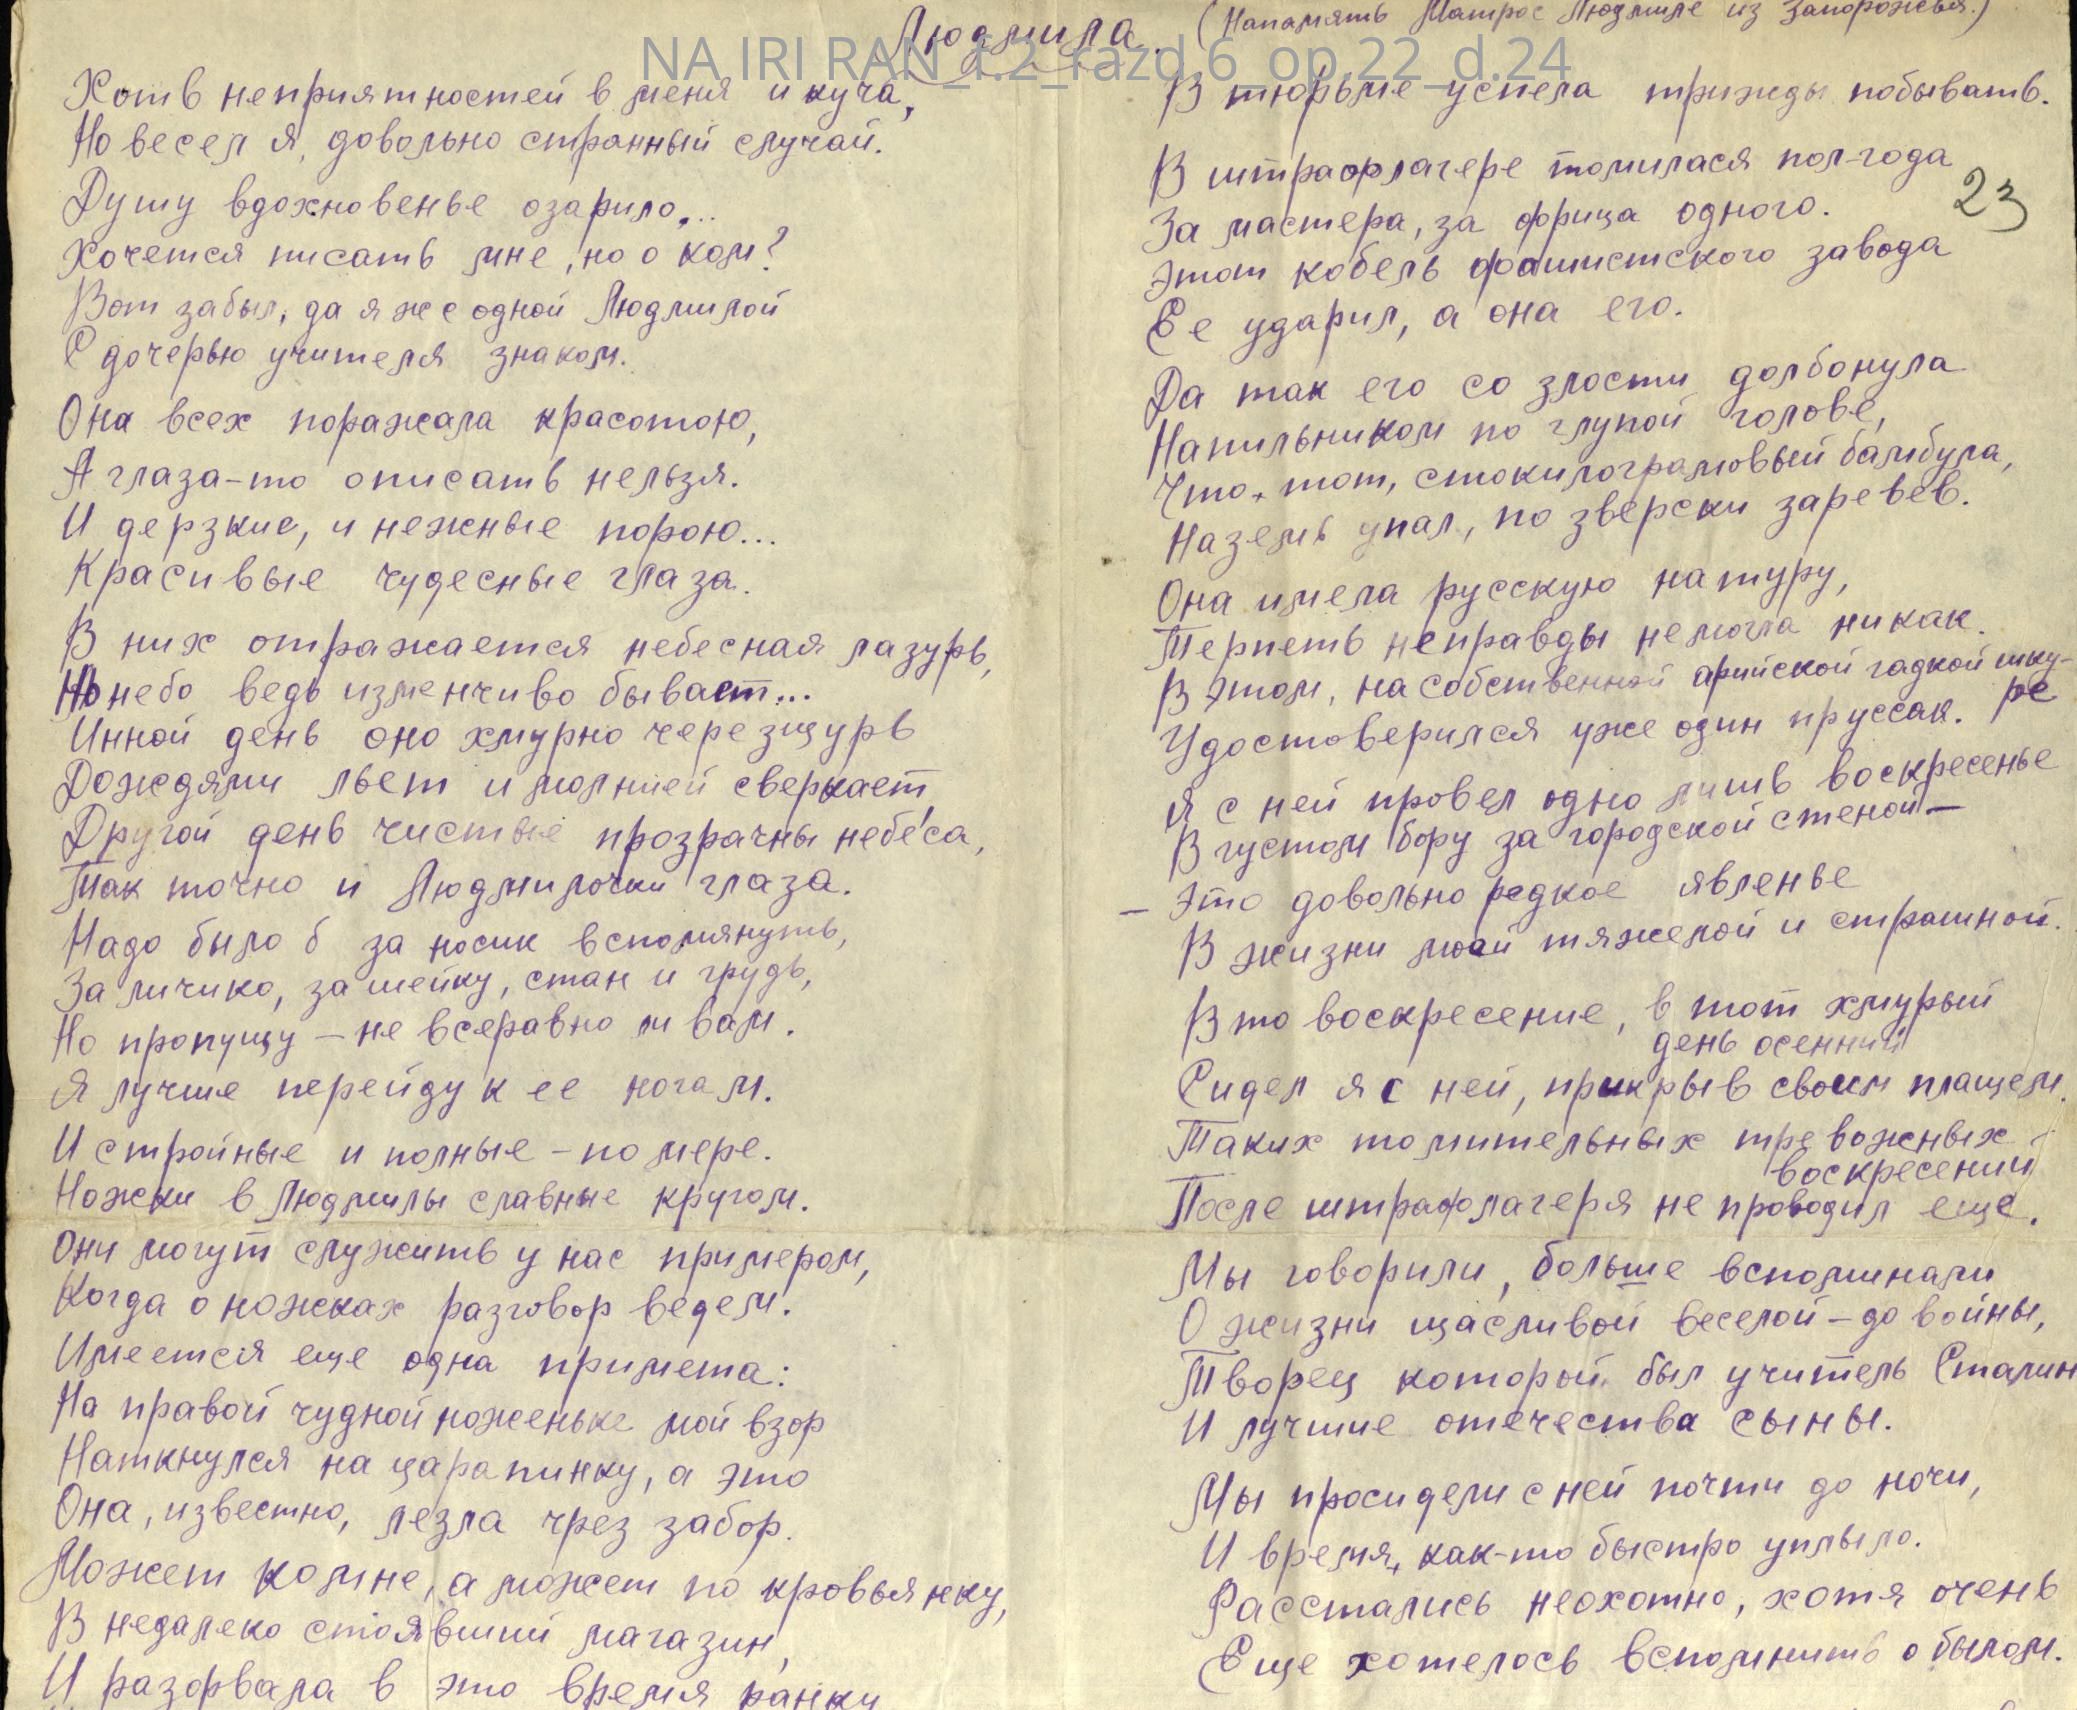 Людмила. (Напамять Матрос Людмиле из Запорожья.)
NA IRI RAN_f.2_razd.6_op.22_d.24
Хоть неприятностей в меня и куча,
Но весел я, довольно странный случай.
Душу вдохновенье озарило...
Хочется писать мне, но о ком?
Вот забыл, да я же с одной Людмилой
С дочерью учителя знаком.
Она всех поражала красотою,
А глаза-то описать нельзя.
И дерзкие, и нежные порою...
Красивые чудесные глаза.
В них отражается небесная лазурь,
Но небо ведь изменчиво бывает...
Инной день оно хмурно черезщурь
Дождями льет и молнией сверкает
Другой день чистые прозрачны небеса,
Так точно и Людмилочки глаза.
Надо было б за носик вспомянуть,
За личико, за шейку, стан и грудь,
Но пропущу – не всеравно ли вам.
Я лучше перейду к ее ногам.
И стройные и полные – по мере.
Ножки в Людмилы славные кругом.
Они могут служить у нас примером,
Когда о ножках разговор ведем.
Имеется еще одна примета:
На правой чудной ноженьке мой взор
Наткнулся на царапинку, а это
Она, известно, лезла чрез забор.
Может ко мне, а может по кровьянку,
В недалеко стоявший магазин,
И разорвала в это время ранку
В тюрьме успела трижды побывать.
23
В штрафлагере томилася пол-года
За мастера, за фрица одного.
Этот кобель фашистского завода
Ее ударил, а она его.
Да так его со злости долбонула
Напильником по глупой голове,
Что, тот, стокилограмовый бамбула,
Наземь упал, по зверски заревев.
Она имела русскую натуру,
Терпеть неправды немогла никак.
В этом, на собственной арийской гадкой шку-
ре
Удостоверился уже один пруссак.
Я с ней провел одно лишь воскресенье
В густом бору за городской стеной –
– Это довольно редкое явленье
В жизни моей тяжелой и страшной.
В то воскресение, в тот хмурый
день осенний
Сидел я с ней, прикрыв своим плащем.
Таких томительных тревожных
воскресений
После штрафлагеря не проводил еще.
Мы говорили, больше вспоминали
О жизни щасливой веселой – до войны,
Творец которой был учитель Сталин
И лучшие отечества сыны.
Мы просидели с ней почти до ночи,
И время, как-то быстро уплыло.
Расстались неохотно, хотя очень
Еще хотелось вспомнить о былом.